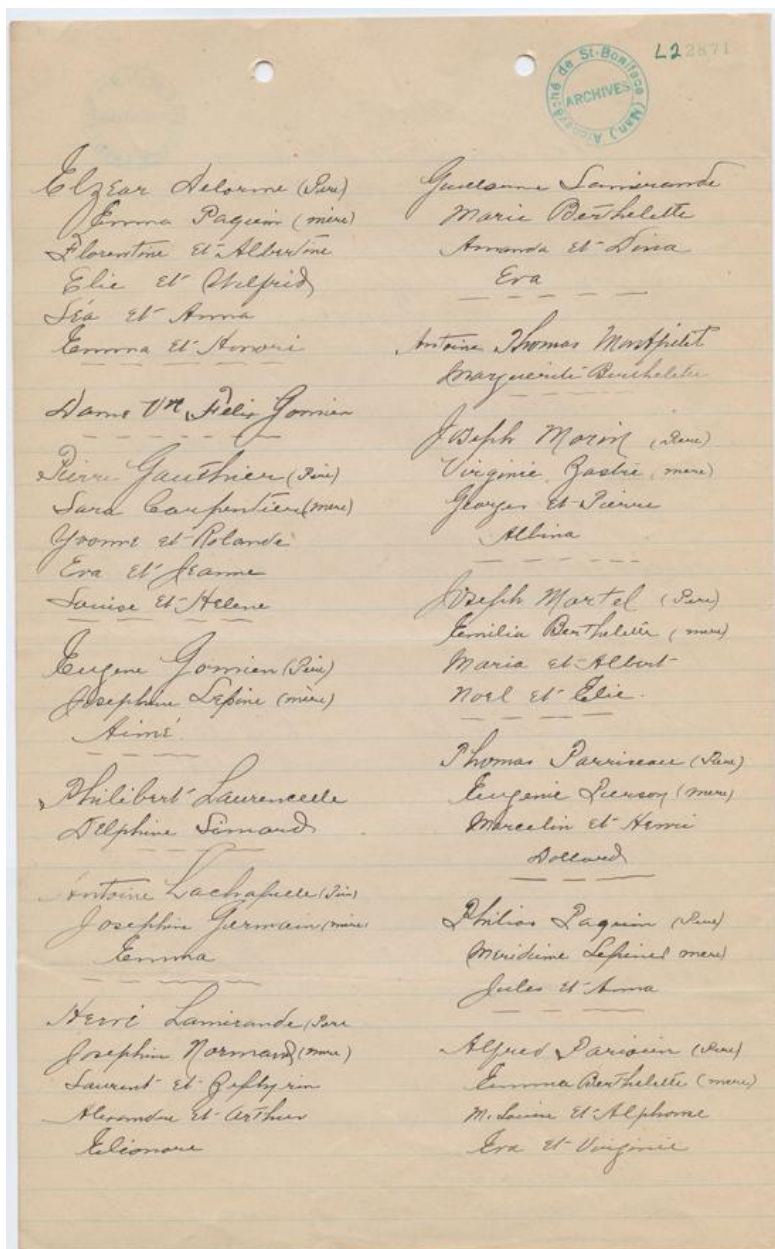 L22871
Archevêché de St-Boniface (Man.)
ARCHIVES
Elzear Delorme (Pere)
Emma Paquin (mère)
Florentine et Albertine
Elie et Wilfrid
Léa et Anna
Emma et
Dame Vve Felix Gomien
Pierre Gauthier (Père)
Sara Carpentier (mère)
Yvonne et Rolande
Eva et Jeanne
Louise et Helene
Eugene Gomien (Père)
Josephine Lepine (mère)
Aimé
Philibert Laurencelle
Delphine Simard
Antoine Lachapelle (Père)
Josephine Germain (mère)
Emma
Henri Lamirande (Pere
Josephin Normand (mère)
Laurent et Zephyrin
Alexandre et Arthur
Eléonore
Guillaume Lamirande
Marie Berthelette
Amanda et Dina
Eva
Antoine Thomas Montpetit
Marguerite Berthelette
Joseph Morin (Pere)
Virginie Zastre mere)
Georges et Pierre
Albina
Joseph Martel (Pere)
Emilia Berthelette (mere)
Maria et Albert
Noel et Elie.
Thomas Parriseau (Pere)
Eugenie Pierson (mere)
Marcelin et Henri
Dollard
Philias Paquin (Pere)
Lepine mere)
Jules et Anna
Alfred Parisien (Pere)
Emma Berthelette (mere)
M. Louise et Alphonse
Eva et Virginie